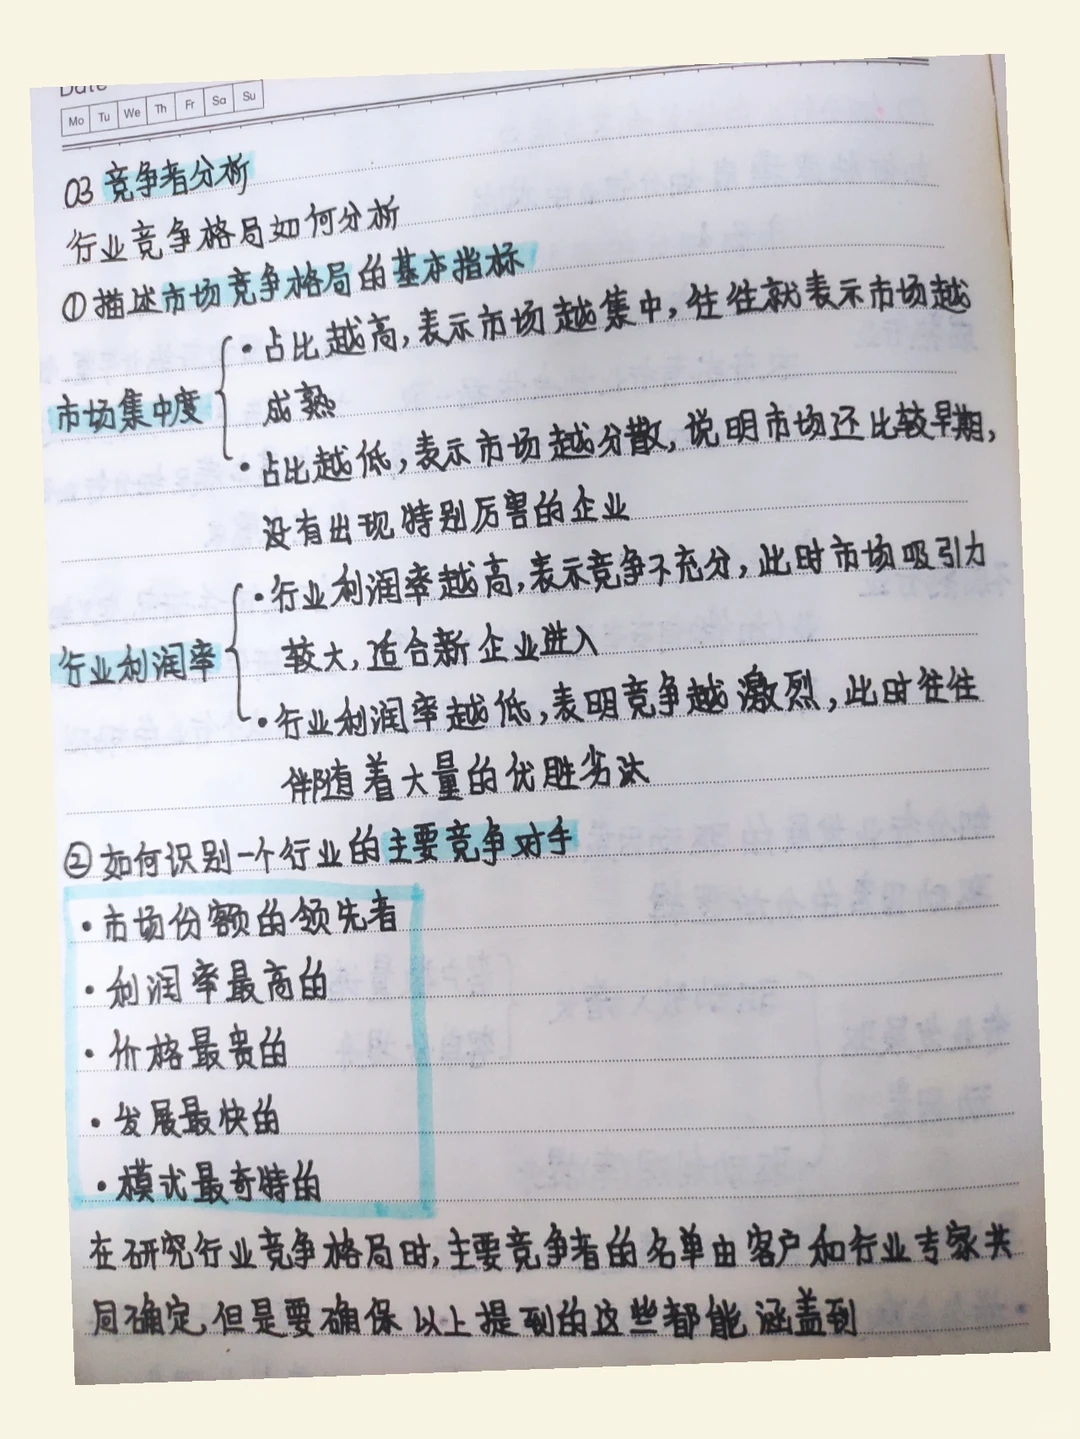 Date
Mo Tu We Th Fr Sa Su
03 竞争者分析
行业竞争格局如何分析
①描述市场竞争格局的基本指标
·占比越高,表示市场越集中,往往就表示市场越
成熟
市场集中度
·占比越低,表示市场越分散,说明市场还比较早期,
没有出现特别厉害的企业
·行业利润率越高,表示竞争不充分,此时市场吸引力
较大,适合新企业进入
行业利润率
·行业利润率越低,表明竞争越激烈,此时往往
伴随着大量的优胜劣汰
②如何识别一个行业的主要竞争对手
·市场份额的领先者
·利润率最高的
·价格最贵的
·发展最快的
·模式最奇特的
在研究行业竞争格局时,主要竞争者的名单由客户和行业专家共
同确定,但是要确保以上提到的这些都能涵盖到